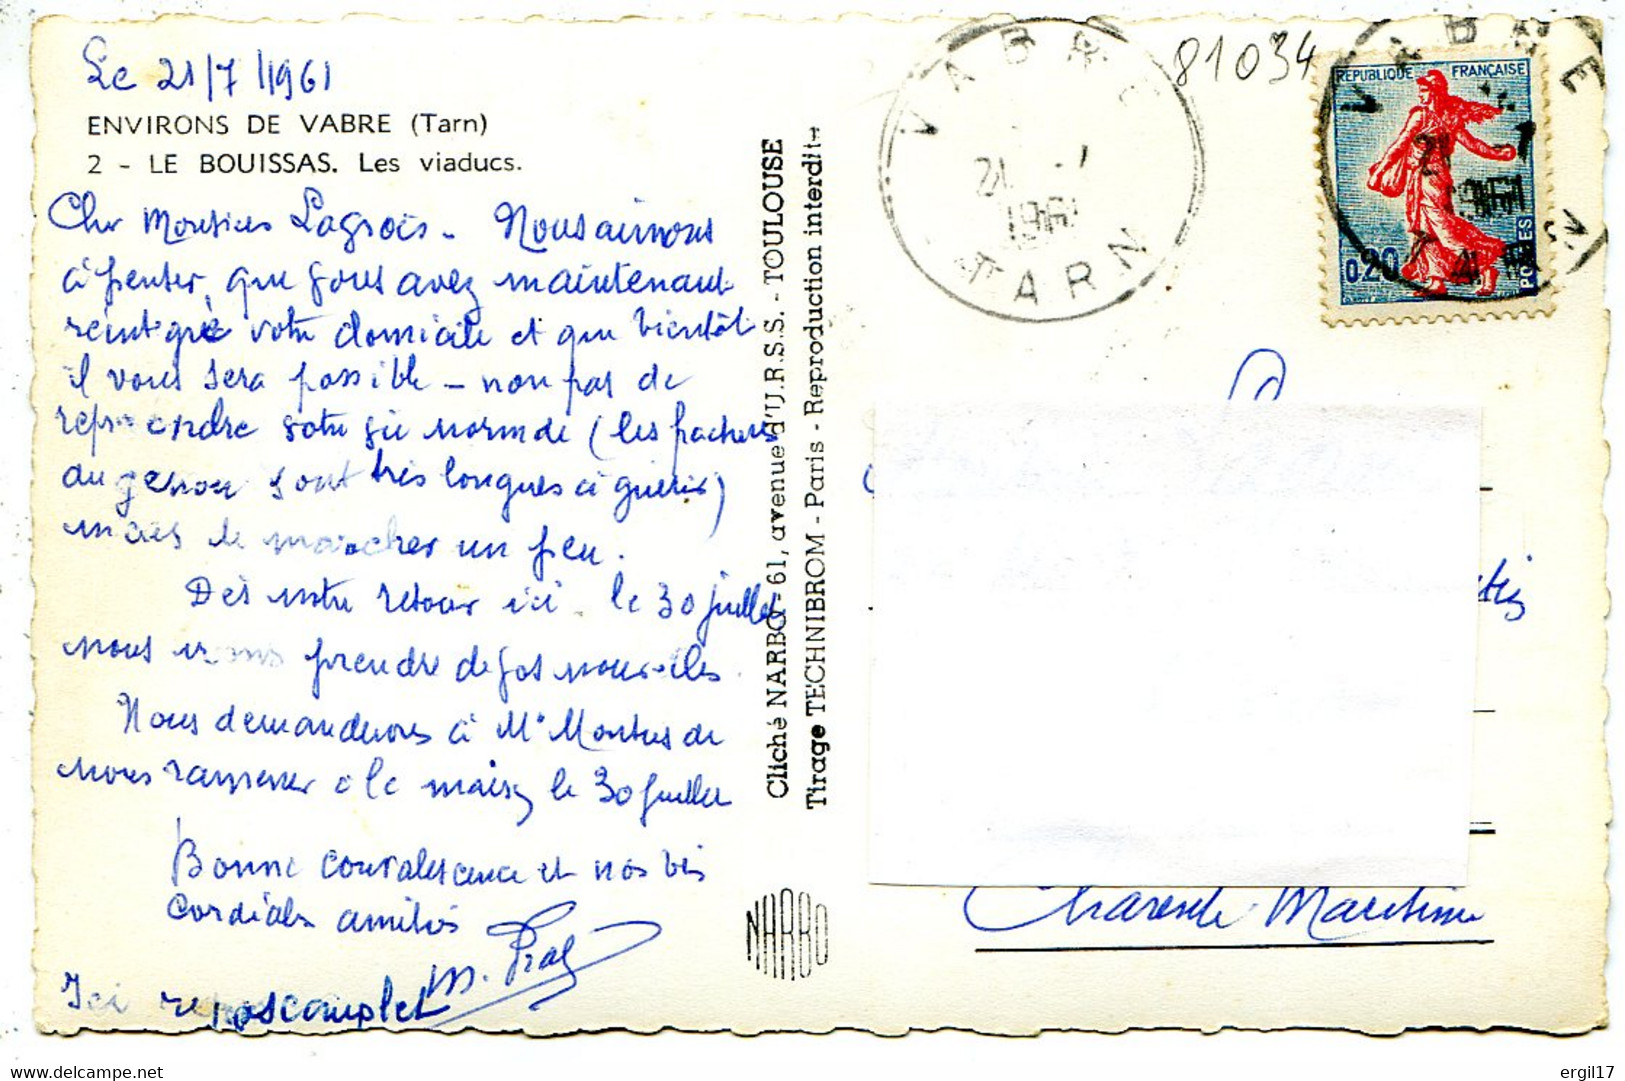 Le 21/7/1961
ENVIRONS DE VABRE (Tarn)
2 - LE BOUISSAS. Les viaducs.
Cher Monsieur Lagrois - Nous aimons
à penser, que vous avez maintenant
réintégré votre domicile et que bientôt
il vous sera possible - non pas de
reprendre votre vie normale (les fractures
du genou sont très longues à guérir)
mais de marcher un peu.
Dès notre retour ici - le 30 juillet
nous irons prendre de vos nouvelles.
Nous demanderons à Mr de
nous ramener à la maison le 30 juillet
Bonne convalescence et nos très
cordiales amitiés
M.
Ici repos complet
Cliché NARBO - 61, avenue d'U.R.S.S. - TOULOUSE
Tirage TECHNIBROM - Paris - Reproduction interdite
NARBO
VABRE
21 - 7
1961
TARN
81034
REPUBLIQUE FRANÇAISE
0,20
POSTES
VABRE
21 - 7
1961
Charente Maritime
ergil17